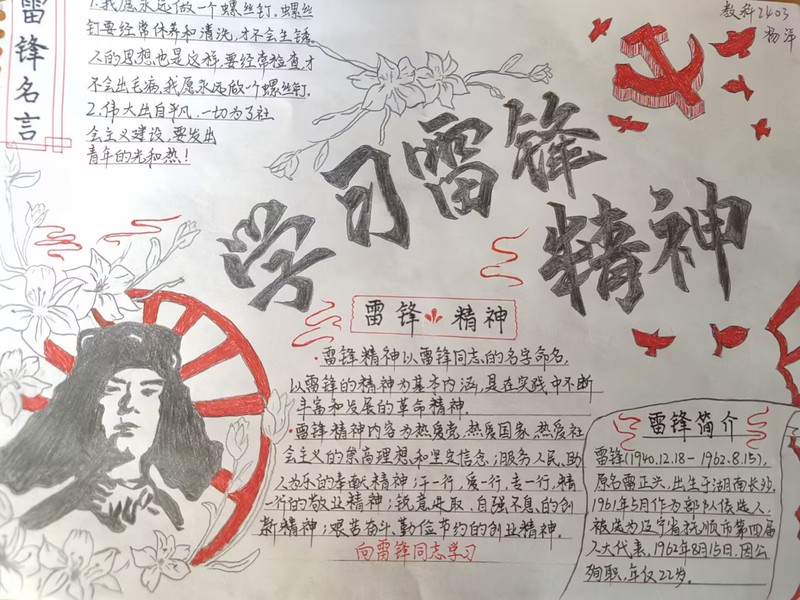 雷锋名言
1.我愿永远做一个螺丝钉。螺丝
钉要经常保养和清洗,才不会生锈。
人的思想也是这样,要经常检查才
不会出毛病。我愿永远做一个螺丝钉。
2.伟大出自平凡,一切为了社
会主义建设,要发出
青年的光和热!
教科2403
杨洋
学习雷锋
精神
雷锋精神
·雷锋精神以雷锋同志的名字命名,
以雷锋的精神为基本内涵,是在实践中不断
丰富和发展的革命精神。
·雷锋精神内容为热爱党、热爱国家、热爱社
会主义的崇高理想和坚定信念;服务人民、助
人为乐的奉献精神;干一行、爱一行、专一行、精
一行的敬业精神;锐意进取、自强不息的创
新精神;艰苦奋斗、勤俭节约的创业精神。
向雷锋同志学习
雷锋简介
雷锋(1940.12.18-1962.8.15),
原名雷正兴,出生于湖南长沙,
1961年5月作为部队候选人,
被选为辽宁省抚顺市第四届
人大代表,1962年8月15日,因公
殉职,年仅22岁。